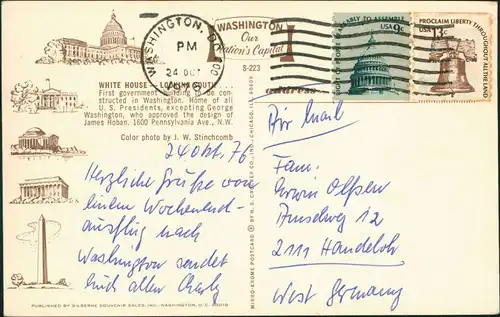 WASHINGTON, D.C. 200
PM
24 OCT
1976
WASHINGTON
Our
Nation's Capital
RIGHT OF PEOPLE PEACEABLY TO ASSEMBLE
USA 9c
PROCLAIM LIBERTY THROUGHOUT ALL THE LAND
USA 13c
S-223
address
WHITE HOUSE — LOOKING SOUTH . . .
First government building to be con-
structed in Washington. Home of all
U. S. Presidents, excepting George
Washington, who approved the design of
James Hoban. 1600 Pennsylvania Ave., N.W.
Color photo by J. W. Stinchcomb
Air Mail
24 Okt. 76
Herzliche Grüße von
einem Wochenend-
ausflug nach
Washington sendet
Euch allen Charly
Fam:
Erwin Olfsen
Amselweg 12
2111 Handeloh
West Germany
MIRRO-KROME POSTCARD © BY H. S. CROCKER CO., INC., CHICAGO, ILL. 60609
PUBLISHED BY SILBERNE SOUVENIR SALES, INC., WASHINGTON, D. C. 20018